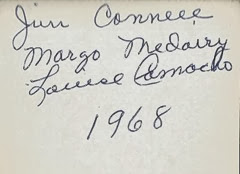 Jim Connell
Margo McDairy
Louise Camacho
1968